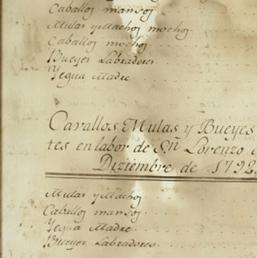 Caballos mansos
Mulas y Machos mochos
Caballos mochos
Bueyes Labradores
Yegua Madre
Cavallos Mulas y Bueyes
tes en labor de Sn̄ Lorenzo
Diziembre de 1792
Mulas y Machos
Caballos mansos
Yegua Madre
Bueyes Labradores